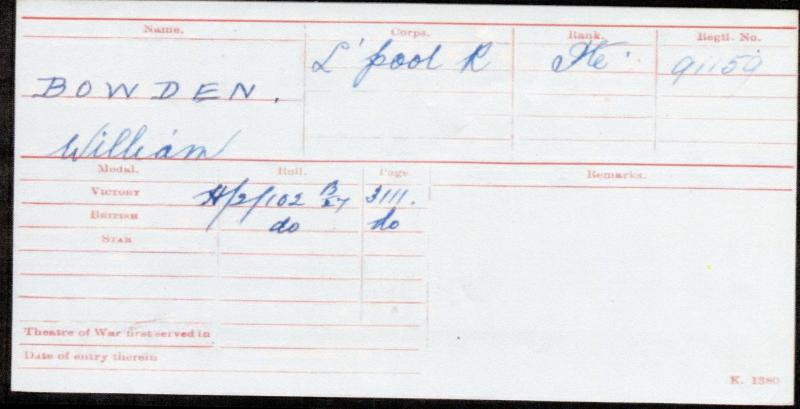 Name. Corps. Rank. Regtl. No.
BOWDEN. L'pool R Pte 91159
William
Medal. Roll. Page. Remarks.
VICTORY H/2/102 B 3111.
BRITISH do do
STAR
Theatre of War first served in
Date of entry therein
K. 1380